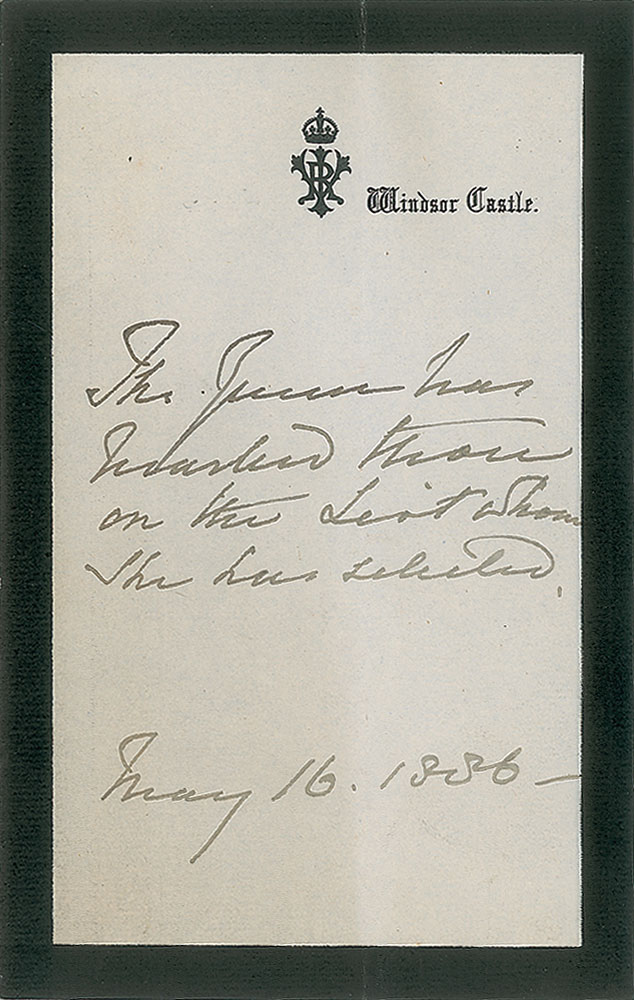 VRI
Windsor Castle.
The Queen has
marked those
on the List whom
She has selected.
May 16. 1886 –